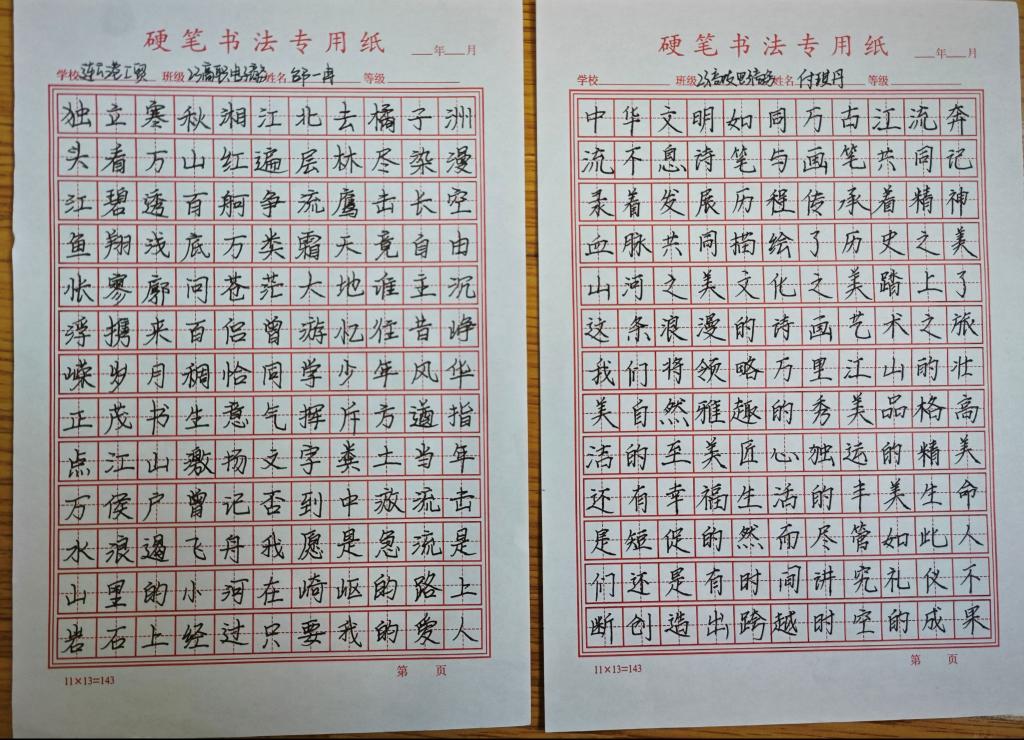 硬笔书法专用纸
年 月
学校 连云港工贸 班级 23高职电商 姓名 邹一冉 等级
独立寒秋湘江北去橘子洲
头看万山红遍层林尽染漫
江碧透百舸争流鹰击长空
鱼翔浅底万类霜天竟自由
怅寥廓问苍茫大地谁主沉
浮携来百侣曾游忆往昔峥
嵘岁月稠恰同学少年风华
正茂书生意气挥斥方遒指
点江山激扬文字粪土当年
万侯户曾记否到中流击
水浪遏飞舟我愿是急流是
山里的小河在崎岖的路上
岩石上经过只要我的爱人
11×13=143
第 页
硬笔书法专用纸
年 月
学校 班级 姓名 付琪丹 等级
中华文明如同万古江流奔
流不息诗笔与画笔共同记
录着发展历程传承着精神
血脉共同描绘了历史之美
山河之美文化之美踏上了
这条浪漫的诗画艺术之旅
我们将领略万里江山的壮
美自然雅趣的秀美品格高
洁的至美匠心独运的精美
还有幸福生活的丰美生命
是短促的然而尽管如此人
们还是有时间讲究礼仪不
断创造出跨越时空的成果
11×13=143
第 页